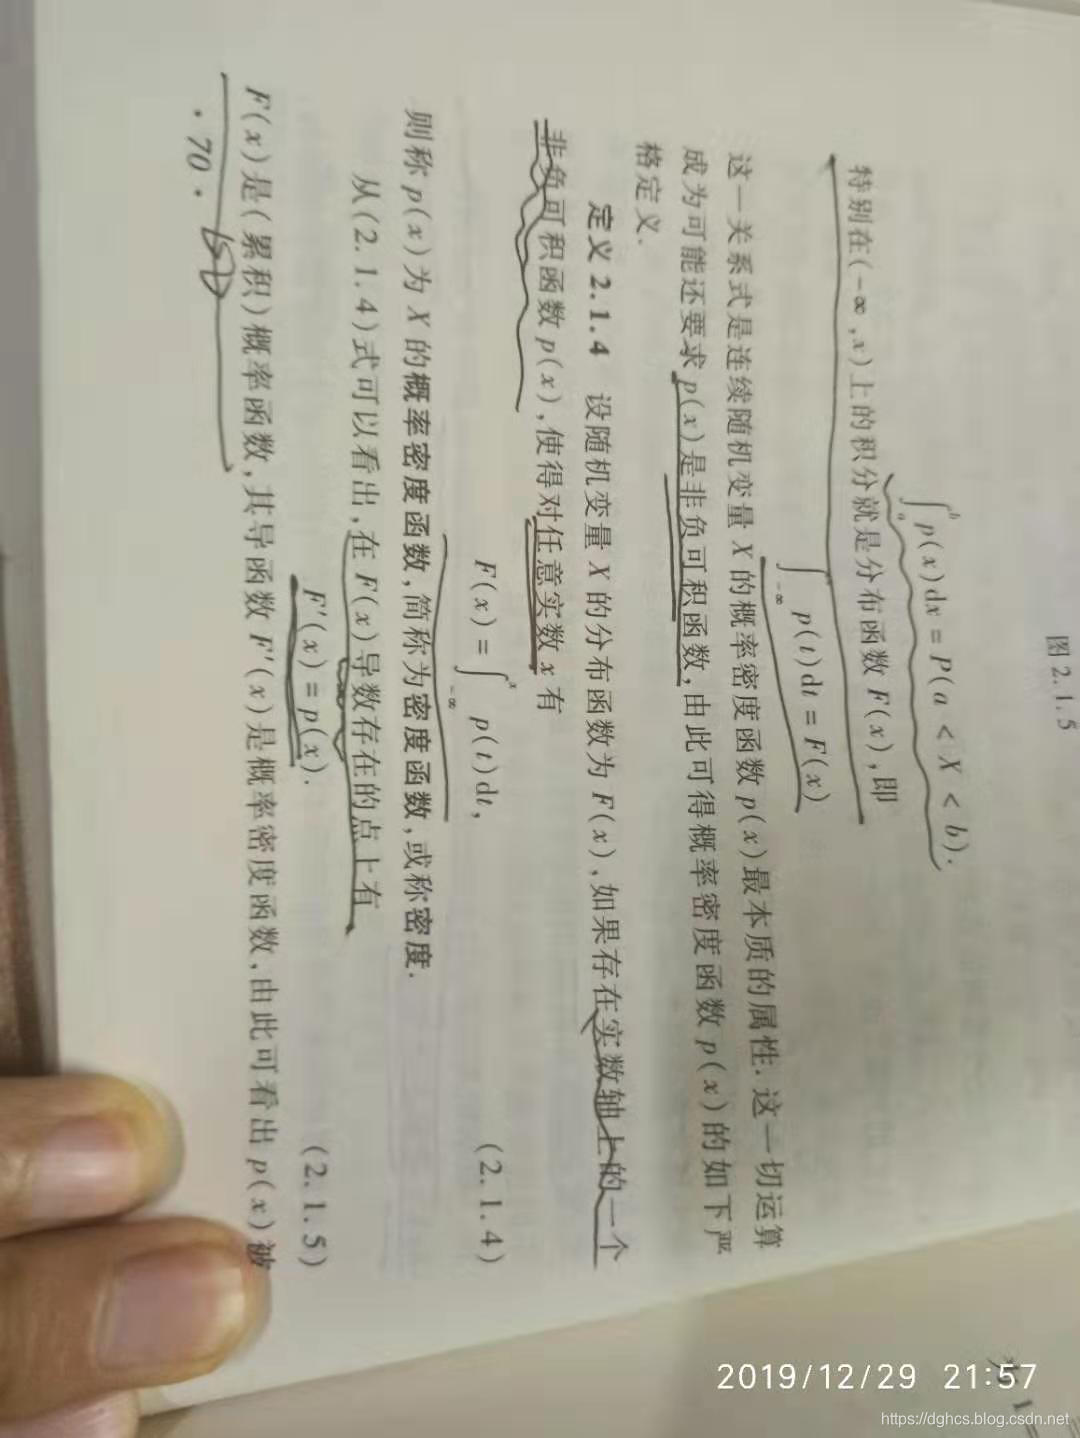 图 2.1.5
∫_a^b p(x)dx = P(a < X < b).
特别在(-∞,x)上的积分就是分布函数 F(x),即
∫_{-∞}^x p(t)dt = F(x)
这一关系式是连续随机变量 X 的概率密度函数 p(x)最本质的属性. 这一切运算
成为可能还要求 p(x)是非负可积函数,由此可得概率密度函数 p(x)的如下严
格定义.
定义 2.1.4 设随机变量 X 的分布函数为 F(x),如果存在实数轴上的一个
非负可积函数 p(x),使得对任意实数 x 有
F(x) = ∫_{-∞}^x p(t)dt, (2.1.4)
则称 p(x)为 X 的概率密度函数,简称为密度函数,或称密度.
从(2.1.4)式可以看出,在 F(x)导数存在的点上有
F′(x) = p(x). (2.1.5)
F(x)是(累积)概率函数,其导函数 F′(x)是概率密度函数,由此可看出 p(x)被
· 70 ·
2019/12/29 21:57
https://dghcs.blog.csdn.net